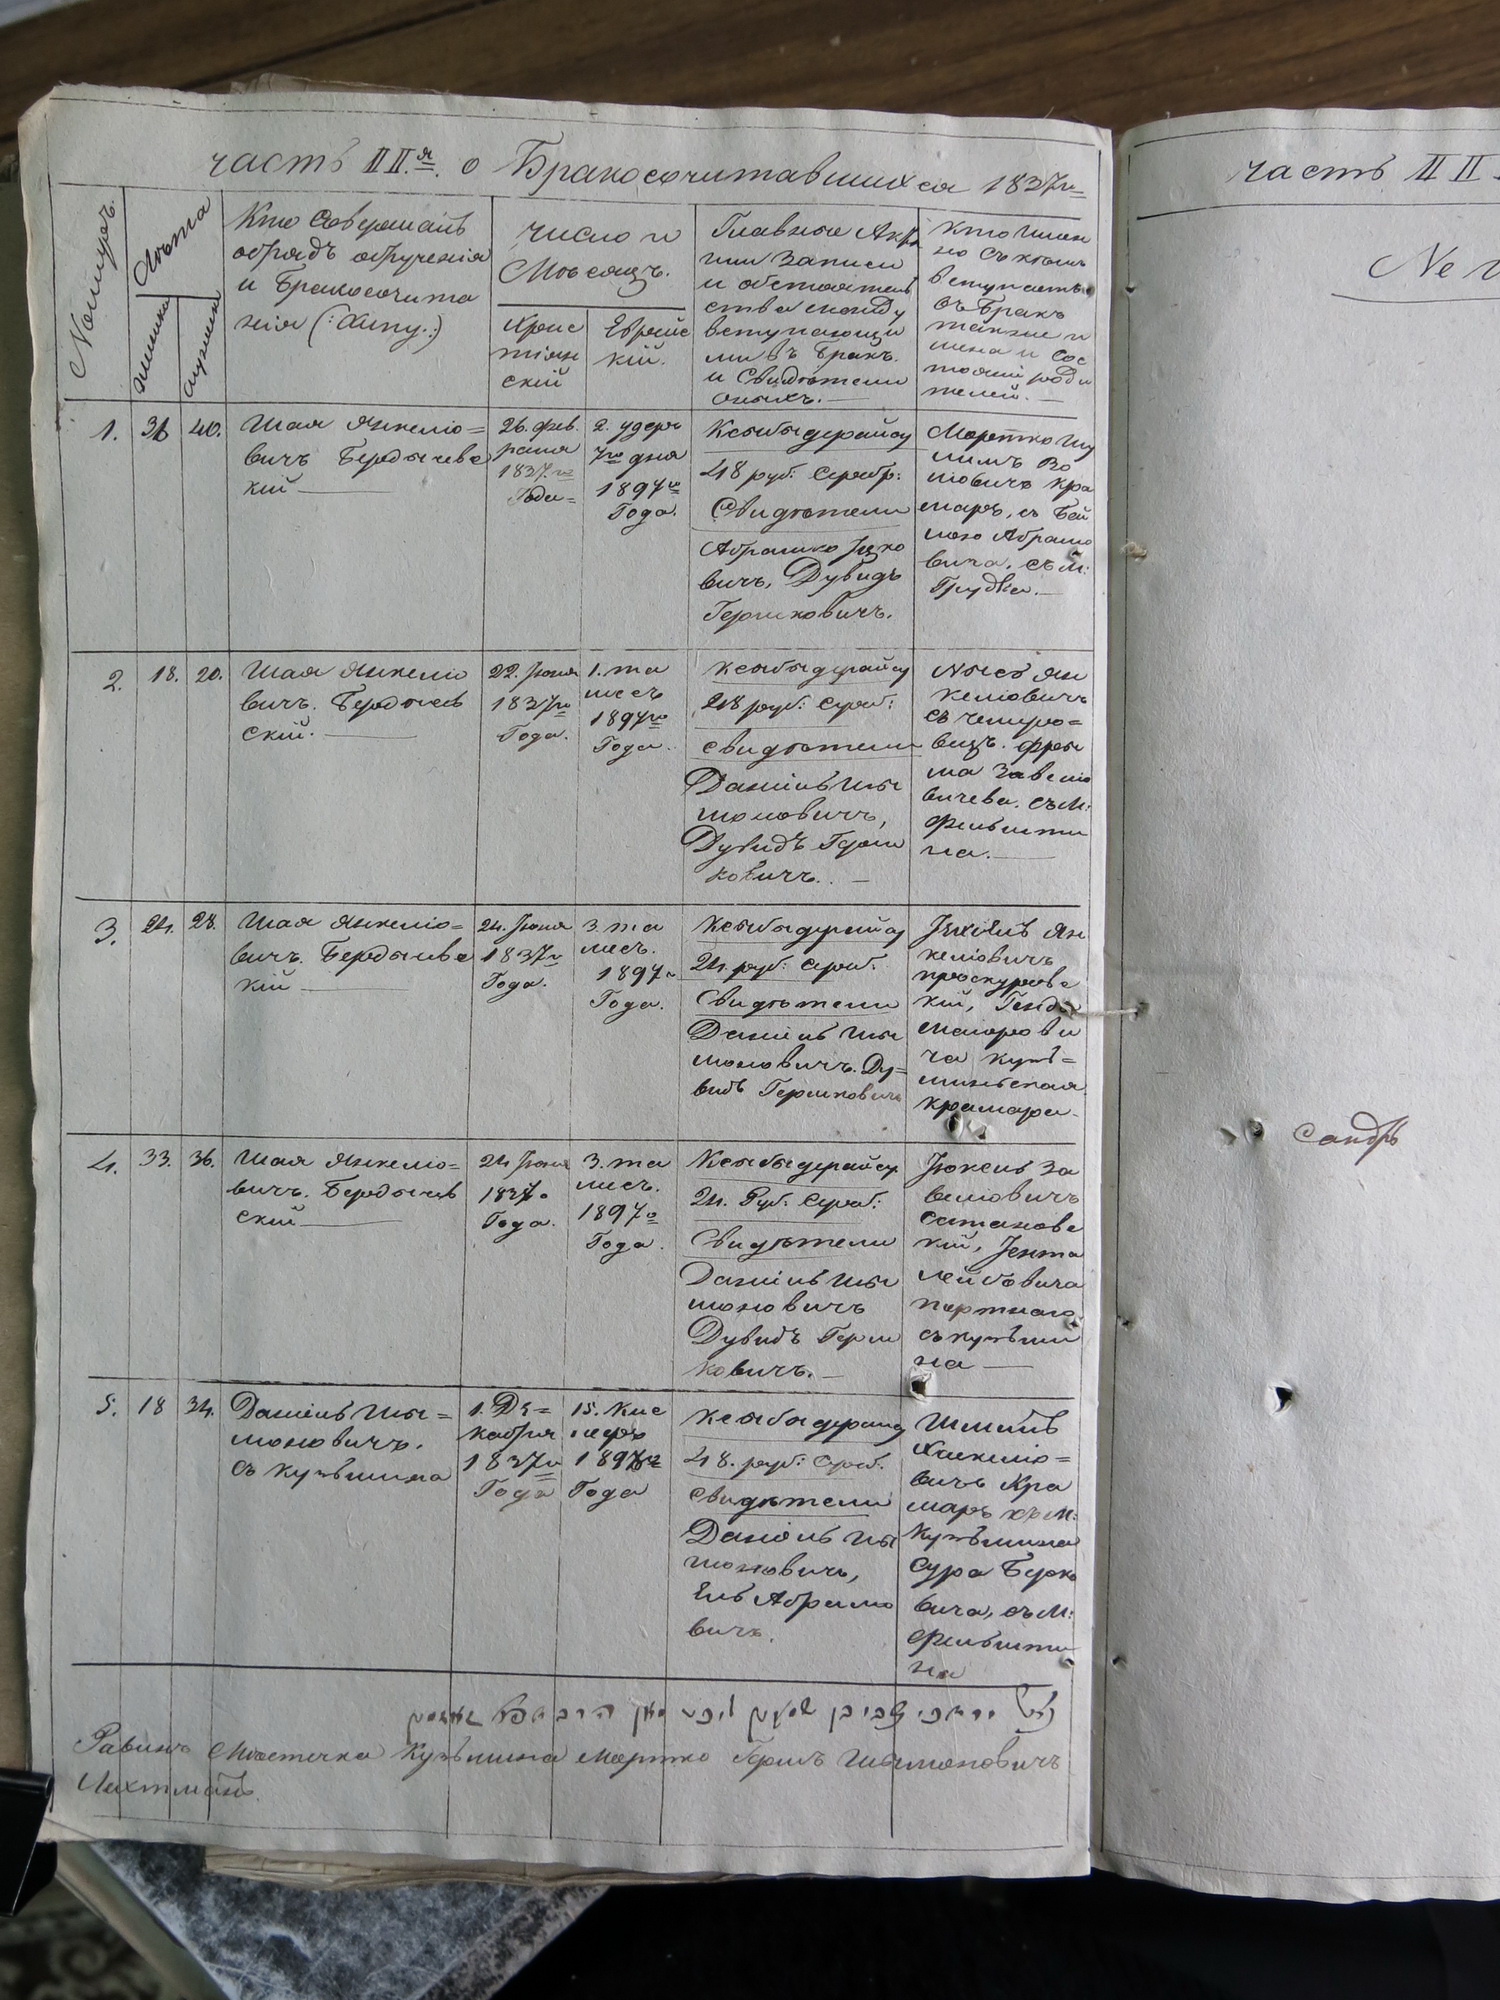 часть II.я о Бракосочитавшихся 1837го
Номеръ.
Лѣта
женска
мужска
Кто Совершалъ
обрядъ обрученія
и Бракосочита
нія (:Хипу:)
число и
Мѣсяцъ.
Христ
іян
скій
Еврейс
кій.
Главные Акты
или Записи
и обстоятель
ства между
вступающи
ми въ Бракъ.
и Свидѣтели
оныхъ.
Кто имен
но съ кѣмъ
вступаетъ
въ Бракъ
также и
имена и Сос
тояній роди
телей.
1.
40.
Шая Янкеліо=
вичъ Бердычевс
кій
26. фев.
раля
1837.го
Года=
2. удеръ
го дня
1897го
Года.
48 руб: серебр:
Свидѣтели
Абрашко Іцко
вичъ, Дувидъ
Гершковичъ.
Мортко Шу
лимъ
мовичъ Кра
маръ, съ Бей
лою Абрамо
вича, съ М:
Грудка.
2.
18.
20.
Шая Янкелио
вичъ. Бердычев
скій.
22. Іюня
1837го
Года.
1. та
месъ
1897го
Года.
48 руб: сереб:
свидѣтели
Даніель Шы
моновичъ,
Дувидъ Герш
ковичъ.
Янкеліовичъ
съ
вецъ.
ма Завелио
вичева. съ М:
Фельшти
на.
3.
24.
28.
Шая Янкеліо=
вичъ. Бердычевс
кій
24. Іюня
1837го
Года.
3. та
месъ.
1897го
Года.
24. руб: сереб:
Свидѣтели
Даніель Шы
моновичъ. Ду=
видъ Гершковичъ
Ян
келіовичъ
проскуровс
кій,
Маіорови
ча Кузь=
минская
крамара.
4.
33.
36.
Шая Янкелио=
вичъ. Бердычев
скій
24 Іюня
1837го
Года.
3. та
месъ.
1897го
Года.
24. Руб: Сереб:
Свидѣтели
Даніель Шы
моновичъ
Дувидъ Герш
ковичъ.
За
велиовичъ
Остановс
кій, Іента
Лейбовича
портнаго
съ Кузьми
на
5.
18
34.
Даніель Шы=
моновичъ.
съ Кузьмина
1. Де=
кабря
1837го
Года
15. Кис
1898го
Года
48. руб: Среб.
свидѣтели
Даніель Шы
моновичъ,
Ель Абрамо
вичъ.
Шмиль
Хаскеліо=
вичъ Кра
маръ съ М:
Кузьмина
Сура Берко
вича, съ М:
Фельшти
на
Равинъ Мѣстечка Кузьмина Мортко Гершъ Шымоновичъ
Лихтманъ.
часть II
сандръ